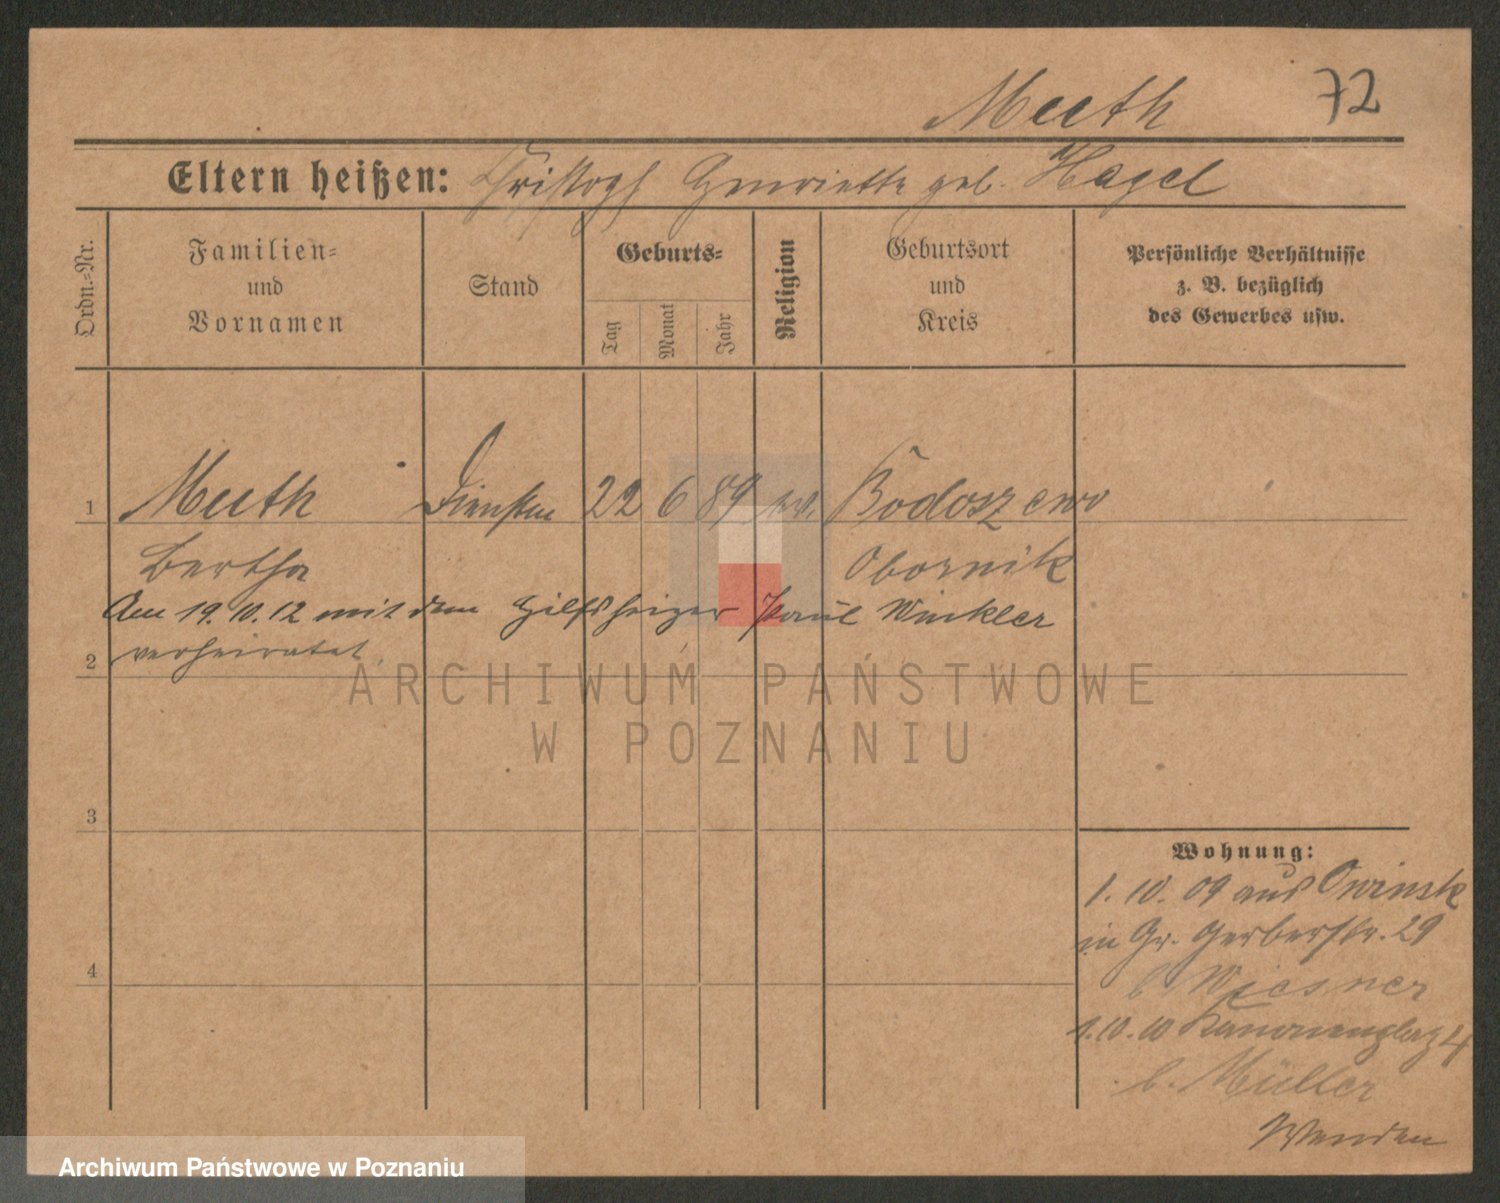 Meeth 72
Eltern heißen: Christoph Henriette geb. Hagel
Ordn.-Nr.
Familien-
und
Vornamen
Stand
Geburts-
Tag
Monat
Jahr
Religion
Geburtsort
und
Kreis
Persönliche Verhältnisse
z. B. bezüglich
des Gewerbes usw.
1 Meeth 22 6 89 ev. Bodoszewo
Bertha Obornik
Am 19.10.12 mit dem Hilfsheizer Paul Winkler
2 verheiratet.
ARCHIWUM PAŃSTWOWE
W POZNANIU
3
Wohnung:
1. 10. 09 aus Owinsk
in Gr. Gerberstr. 29
4
b. Wiesner
1.10.10 4
b. Müller
Archiwum Państwowe w Poznaniu